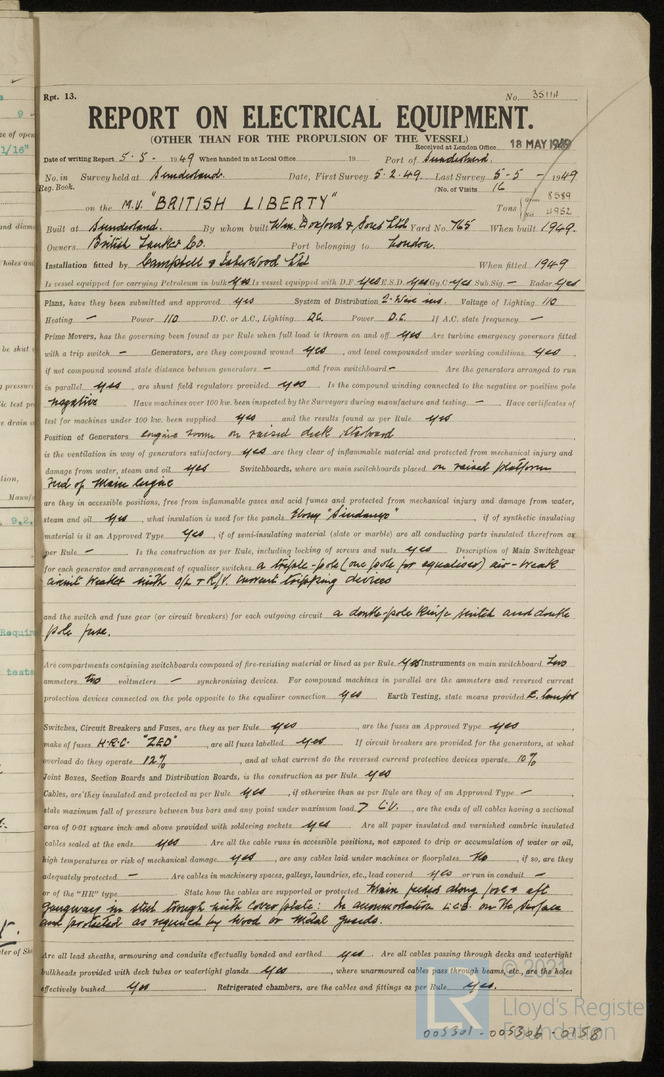 Rpt. 13. No. 35114
REPORT ON ELECTRICAL EQUIPMENT.
(OTHER THAN FOR THE PROPULSION OF THE VESSEL)
Received at London Office 18 MAY 1949
Date of writing Report 5·5· 1949 When handed in at Local Office 19 Port of Sunderland.
No. in Survey held at Sunderland. Date, First Survey 5·2·49. Last Survey 5-5- 1949
Reg. Book. (No. of Visits 16
on the M.V. "BRITISH LIBERTY" Tons { Gross 8589
Net 4952
Built at Sunderland. By whom built Wm. Doxford & Sons Ltd Yard No. 765 When built 1949.
Owners British Tanker Co. Port belonging to London.
Installation fitted by Campbell & Isherwood Ltd When fitted 1949
Is vessel equipped for carrying Petroleum in bulk Yes Is vessel equipped with D.F. Yes E.S.D. Yes Gy.C Yes Sub.Sig. — Radar Yes
Plans, have they been submitted and approved yes System of Distribution 2-Wire ins. Voltage of Lighting 110
Heating — Power 110 D.C. or A.C., Lighting D.C. Power D.C. If A.C. state frequency —
Prime Movers, has the governing been found as per Rule when full load is thrown on and off yes Are turbine emergency governors fitted
with a trip switch — Generators, are they compound wound yes, and level compounded under working conditions yes,
if not compound wound state distance between generators — and from switchboard — Are the generators arranged to run
in parallel yes, are shunt field regulators provided yes Is the compound winding connected to the negative or positive pole
negative Have machines over 100 kw. been inspected by the Surveyors during manufacture and testing — Have certificates of
test for machines under 100 kw. been supplied yes and the results found as per Rule yes
Position of Generators engine room on raised deck starboard
is the ventilation in way of generators satisfactory yes are they clear of inflammable material and protected from mechanical injury and
damage from water, steam and oil yes Switchboards, where are main switchboards placed on raised platform
Fwd of Main Engine
are they in accessible positions, free from inflammable gases and acid fumes and protected from mechanical injury and damage from water,
steam and oil yes, what insulation is used for the panels Ebony "Sindanyo", if of synthetic insulating
material is it an Approved Type yes, if of semi-insulating material (slate or marble) are all conducting parts insulated therefrom as
per Rule — Is the construction as per Rule, including locking of screws and nuts yes Description of Main Switchgear
for each generator and arrangement of equaliser switches a triple-pole (one pole for equaliser) air-break
circuit breaker with O/L & R/V. current tripping devices
and the switch and fuse gear (or circuit breakers) for each outgoing circuit a double-pole knife switch and double
pole fuse.
Are compartments containing switchboards composed of fire-resisting material or lined as per Rule yes Instruments on main switchboard Two
ammeters two voltmeters — synchronising devices. For compound machines in parallel are the ammeters and reversed current
protection devices connected on the pole opposite to the equaliser connection yes Earth Testing, state means provided E. lamps
Switches, Circuit Breakers and Fuses, are they as per Rule yes, are the fuses an Approved Type yes,
make of fuses H·R·C· "ZED", are all fuses labelled yes If circuit breakers are provided for the generators, at what
overload do they operate 12%, and at what current do the reversed current protective devices operate 10%
Joint Boxes, Section Boards and Distribution Boards, is the construction as per Rule yes
Cables, are they insulated and protected as per Rule yes, if otherwise than as per Rule are they of an Approved Type —,
state maximum fall of pressure between bus bars and any point under maximum load, are the ends of all cables having a sectional
area of 0·01 square inch and above provided with soldering sockets yes Are all paper insulated and varnished cambric insulated
cables sealed at the ends yes Are all the cable runs in accessible positions, not exposed to drip or accumulation of water or oil,
high temperatures or risk of mechanical damage yes, are any cables laid under machines or floorplates No, if so, are they
adequately protected — Are cables in machinery spaces, galleys, laundries, etc., lead covered yes or run in conduit —
or of the "HR" type State how the cables are supported or protected Main feeders along fore & aft
gangway in steel trough with cover plate: In accommodation L.C.B. on the surface
and protected as required by wood or metal guards.
Are all lead sheaths, armouring and conduits effectually bonded and earthed yes Are all cables passing through decks and watertight
bulkheads provided with deck tubes or watertight glands yes, where unarmoured cables pass through beams, etc., are the holes
effectively bushed yes Refrigerated chambers, are the cables and fittings as per Rule yes.
© 2021
Lloyd's Register
Foundation
005301-005306-0158